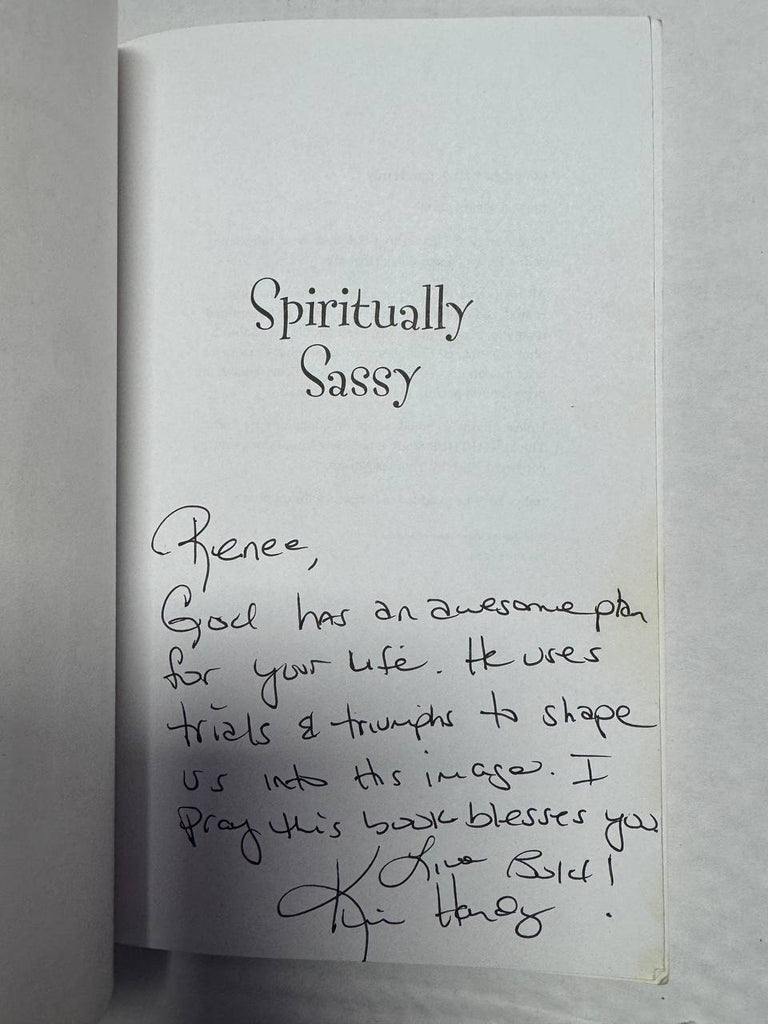 Spiritually
Sassy
Renee,
God has an awesome plan
for your life. He uses
trials & triumphs to shape
us into His image. I
pray this book blesses you
Live Bold!
Kim Hardy